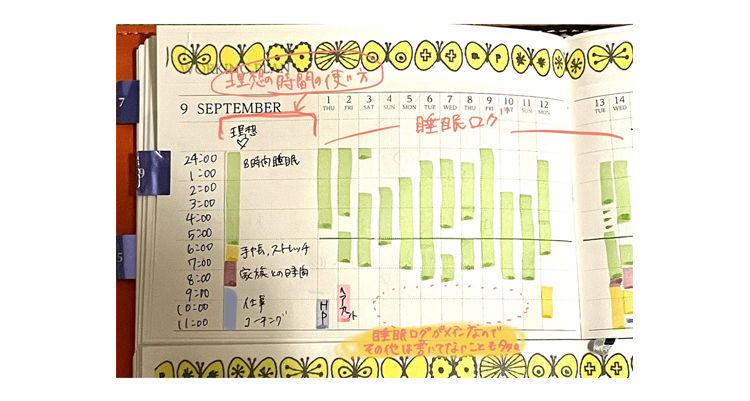 理想の時間の使い方
9 SEPTEMBER
1 2 3 4 5 6 7 8 9 10 11 12 13 14
THU FRI SAT SUN MON TUE WED THU FRI SUN MON TUE WED
睡眠ログ
理想
24:00 8時間睡眠
1:00
2:00
3:00
4:00
5:00
6:00 手帳、ストレッチ
7:00
8:00 家族との時間
9:00
10:00 仕事
11:00 コーチング
HP
ヘアカット
睡眠ログがメインなので
その他は書いてないことも多い。
7
9
5